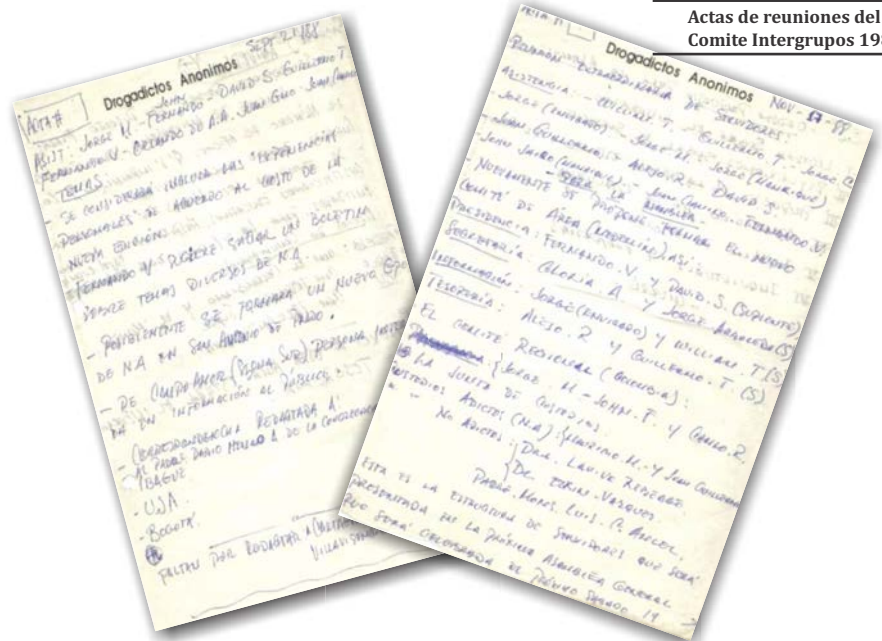 Actas de reuniones del
Comite Intergrupos 198
Drogadictos Anonimos
Sept 21/88
ACTA #
ASIST: JORGE M. - FERNANDO - JOHN - DAVID S. GUILLERMO T.
FERNANDO V. - ORLANDO DE A.A. JUAN GMO - JUAN
TEMAS
- SE CONSIDERARÁ LAS "EXPERIENCIAS
PERSONALES" DE ACUERDO AL COSTO DE LA
NUEVA EDICIÓN
FERNANDO V. SUGIERE SACAR UN BOLETIN
SOBRE TEMAS DIVERSOS DE N.A.
- POSIBLEMENTE SE FORMARÁ UN NUEVO GPO
DE N.A EN SAN ANTONIO DE PRADO.
- DE PERSONA
EN INFORMACION AL PÚBLICO
- CORRESPONDENCIA REDACTADA A:
AL PADRE DARIO A. DE LA
IBAGUÉ
- USA
- BOGOTÁ
FALTAN POR REDACTAR A
Drogadictos Anonimos
NOV - 88
REUNIÓN EXTRAORDINARIA DE SERVIDORES
ASISTENCIA - WILLIAM. T. - GUILLERMO T. - JORGE
JORGE (ENVIGADO) - JORGE M. - JORGE (MANRIQUE)
JUAN GUILLERMO - ALEJO R. - DAVID S.
JOHN JAIRO - JUAN CAMILO - FERNANDO V.
NUEVAMENTE SE PROPONE FORMAR EL NUEVO
COMITÉ DE AREA (MEDELLIN) ASI:
PRESIDENCIA: FERNANDO. V. Y DAVID. S. (SUPLENTE)
SECRETARÍA: GLORIA A. Y JORGE ARANGO (S)
INFORMACIÓN: JORGE (ENVIGADO) Y WILLIAM. T (S)
TESORERÍA: ALEJO. R. Y GUILLERMO. T (S)
EL COMITÉ REGIONAL (COLOMBIA):
JORGE. M. - JOHN. F. Y R.
LA JUNTA DE CUSTODIOS:
CUSTODIOS ADICTOS (N.A): M. Y JUAN GUILLERMO
" NO ADICTOS: DRA.
DR. VASQUEZ
PADRE. LUIS. C.
ESTA ES LA ESTRUCTURA DE SERVIDORES QUE SERÁ
PRESENTADA EN LA PRÓXIMA ASAMBLEA GENERAL
QUE SERÁ CELEBRADA EL PRÓXIMO SABADO 19